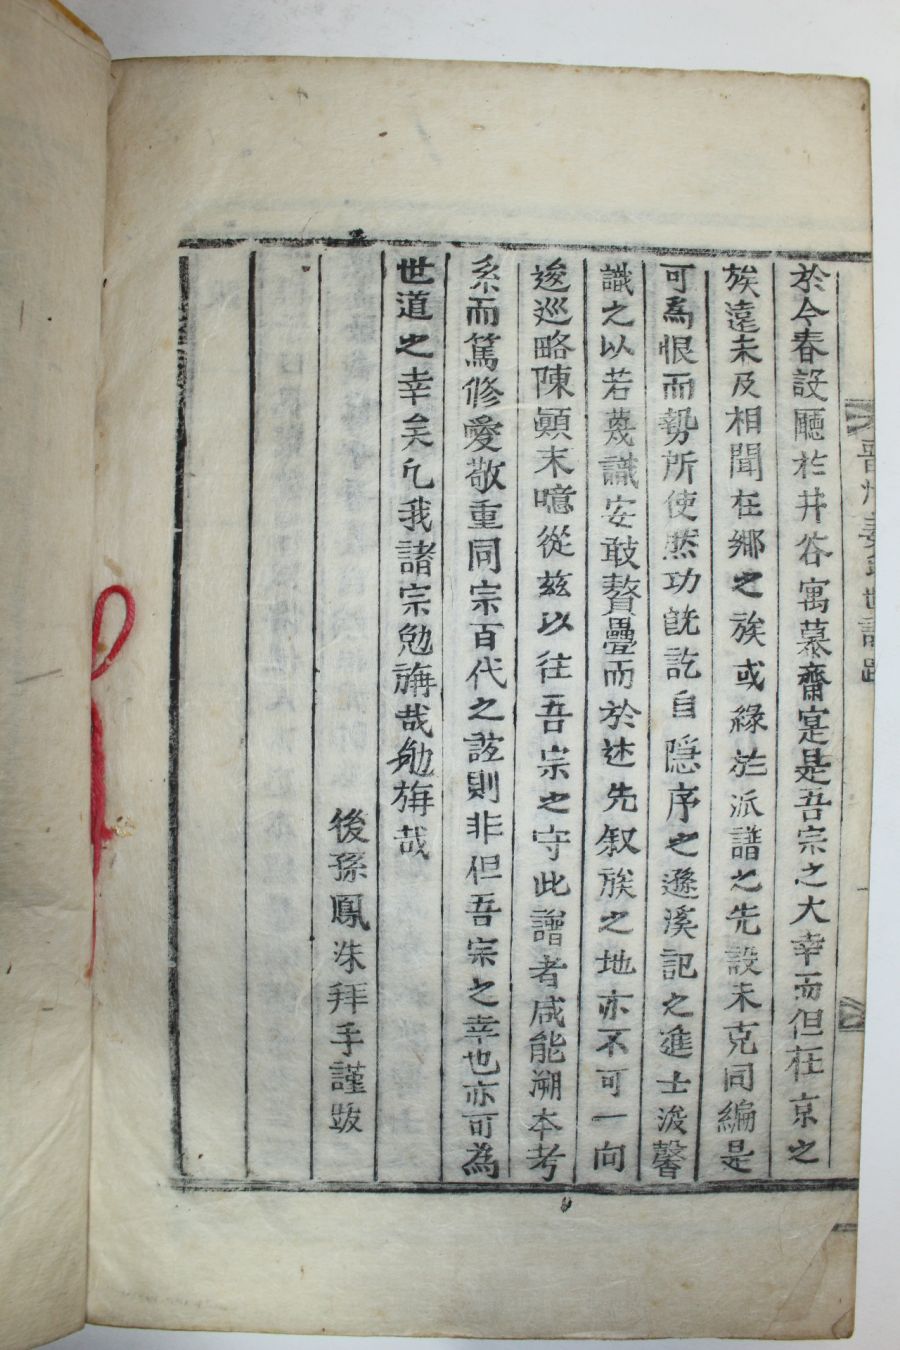 於今春設廳於井谷寓慕齋寔是吾宗之大幸而但在京之
族遠未及相聞在鄉之族或緣於派譜之先設未克同編是
可爲恨而勢所使然功旣訖自隱序之遯溪記之進士浚馨
識之以若蔑識安敢贅疊而於述先叙族之地亦不可一向
逡巡略陳顚末噫從玆以往吾宗之守此譜者咸能溯本考
系而篤修愛敬重同宗百代之誼則非但吾宗之幸也亦可爲
世道之幸矣凡我諸宗勉旃哉勉旃哉
後孫鳳洙拜手謹跋
晋州姜氏世譜跋